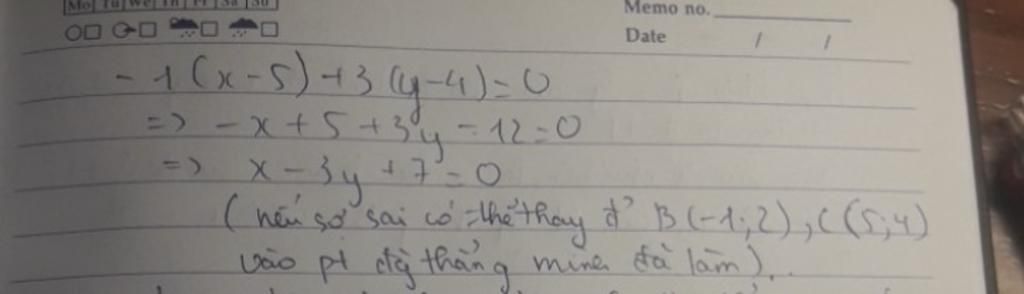 Mo Tu We Th Fr Sa Su
Memo no.
Date / /
- 1 (x - 5) + 3 (y - 4) = 0
=> - x + 5 + 3y - 12 = 0
=> x - 3y + 7 = 0
(nếu sợ sai có thể thay đ' B(-1; 2), C(5; 4)
vào pt đg thẳng mình đã làm)..